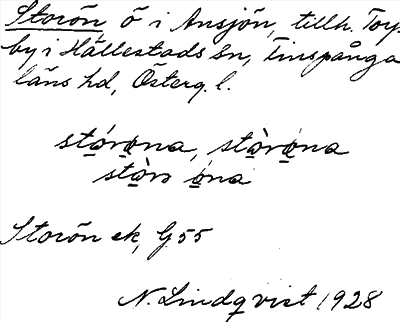 Storön ö i Ansjön, tillh. Torp.
by i Hällestads sn, Finspånga
läns hd, Österg. l.
stórona, stòróna
stòrs óna
Storön ek, G55
N. Lindqvist 1928